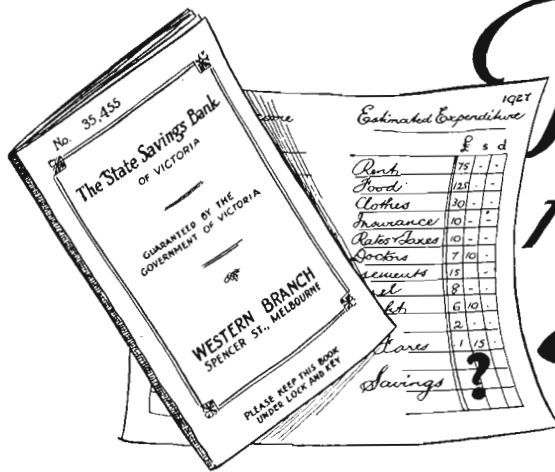 No. 35.455
The State Savings Bank
OF VICTORIA
GUARANTEED BY THE
GOVERNMENT OF VICTORIA
WESTERN BRANCH
SPENCER ST., MELBOURNE
PLEASE KEEP THIS BOOK
UNDER LOCK AND KEY
1927
Estimated Expenditure
£ s d
Rent 75 - -
Food 125 - -
Clothes 30 - -
Insurance 10 - -
Rates & Taxes 10 - -
Doctors 7 10 -
sements 15 - -
el 8 - -
ht 6 10 -
2 - -
Fares 1 15 -
Savings ?